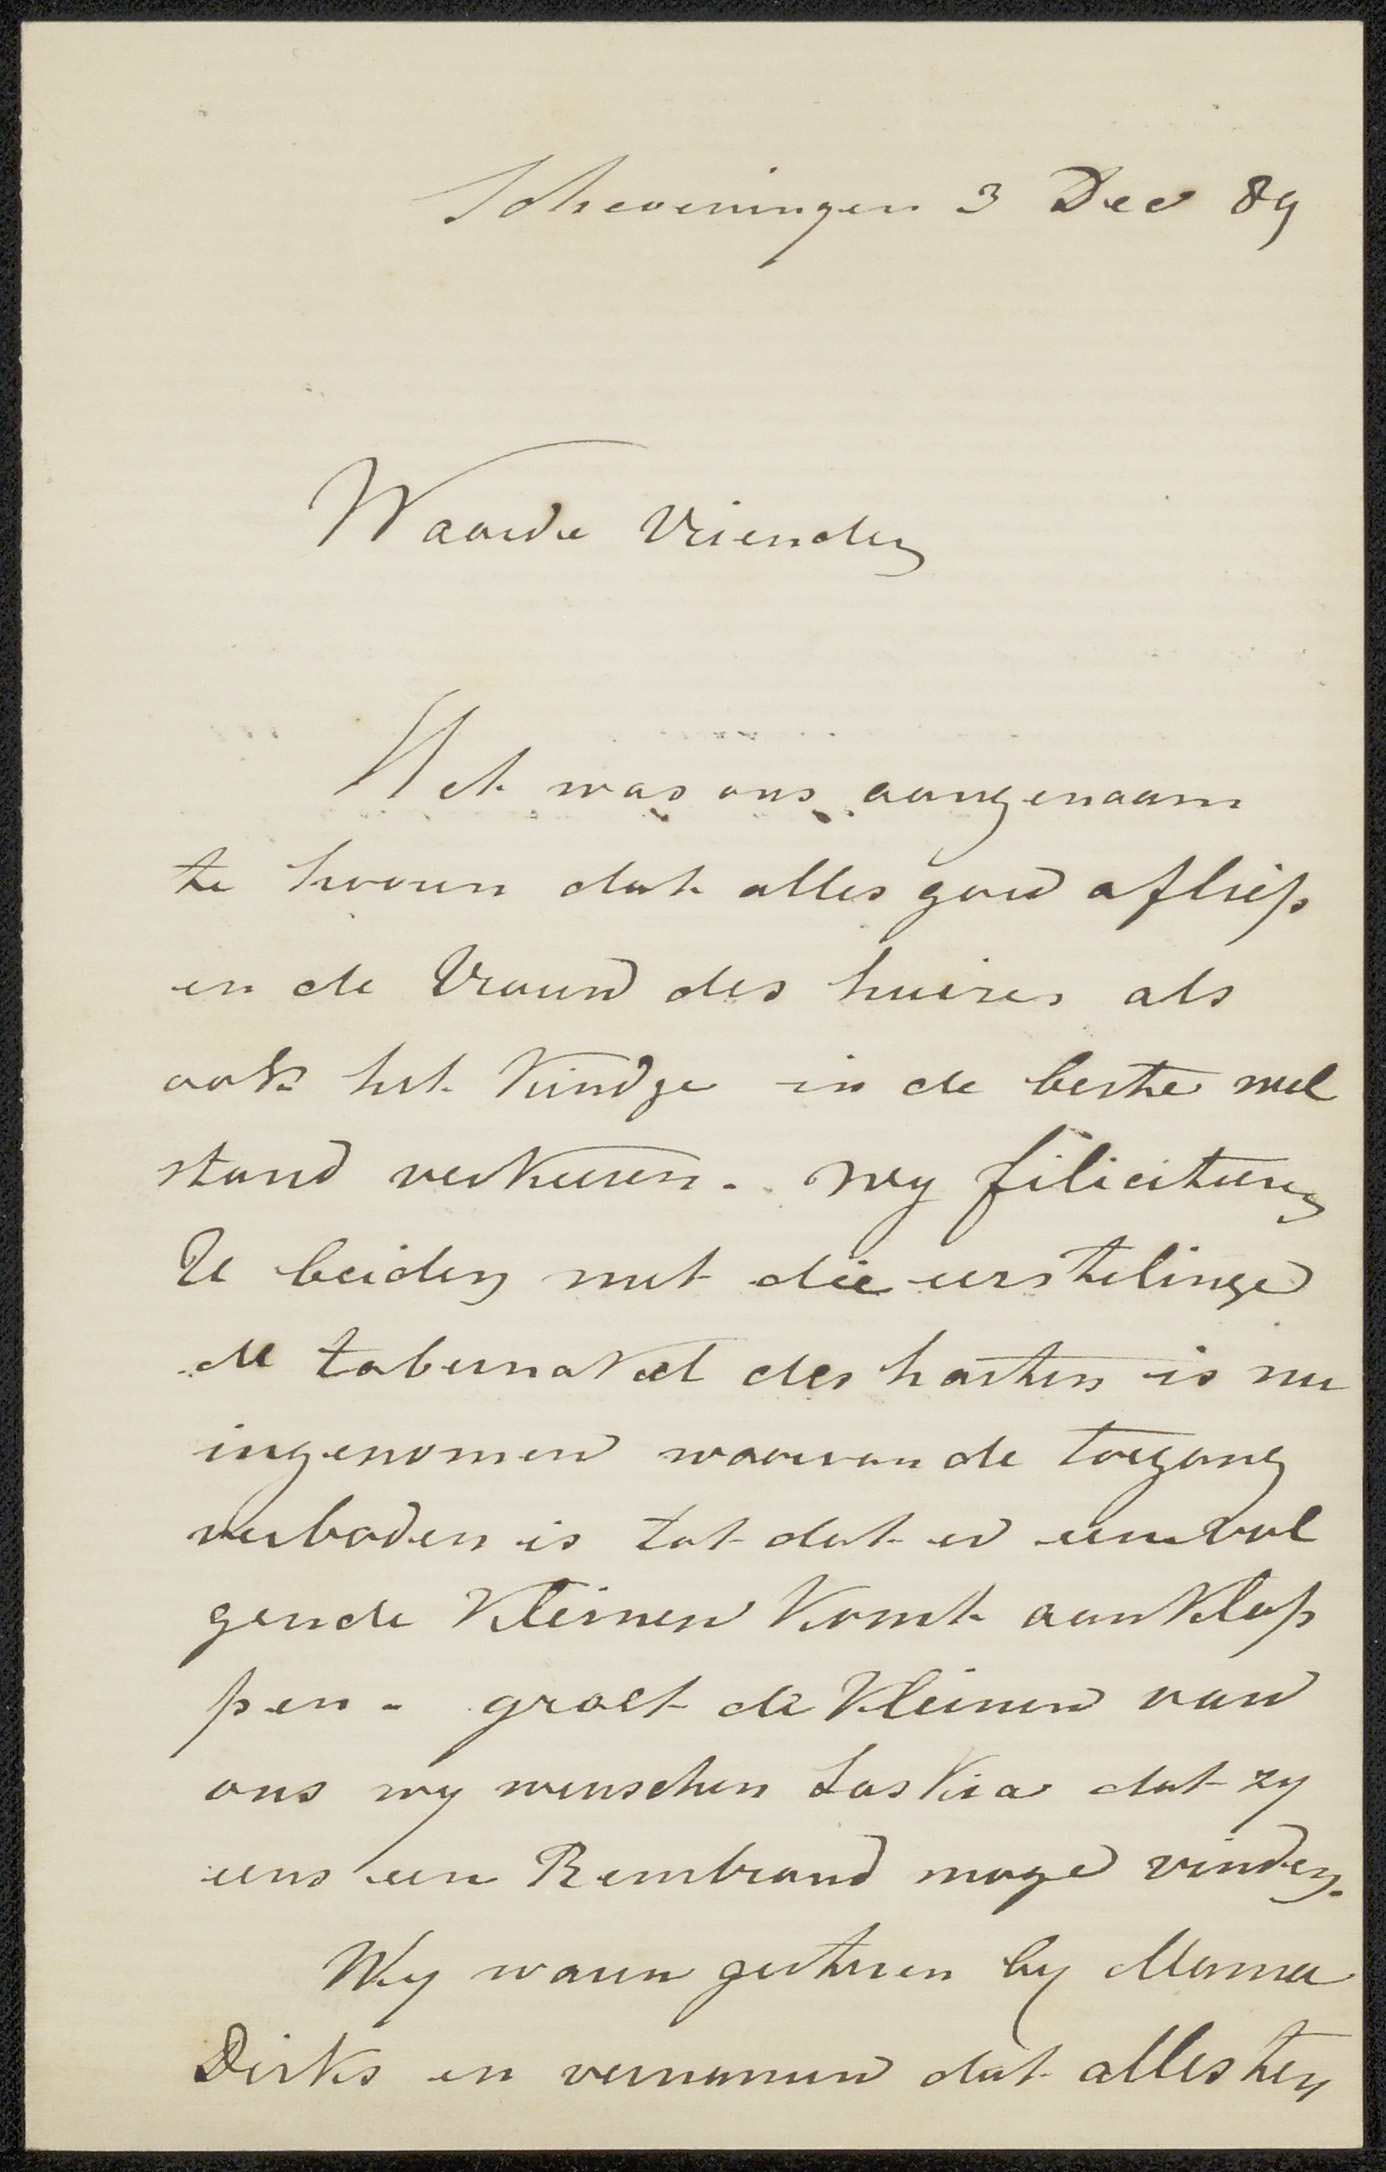 Scheveningen 3 Dec 89
Waarde Vrienden
Het was ons aangenaam
te hooren dat alles goed afliep
en de Vrouw des huizes als
ook het Kindje in de beste wel
stand verkeeren. Wy feliciteeren
U beiden met die eersteling
de tabernakel des harten is nu
ingenomen waarvan de toegang
verboden is tot dat er een vol
gende Kleinen Komt aanklop
pen. groet de Kleinen van
ons wy wenschen Saskia dat zy
eens een Rembrand moge vinden.
Wy waren gisteren by Mama
Dirks en vernamen dat alles ten